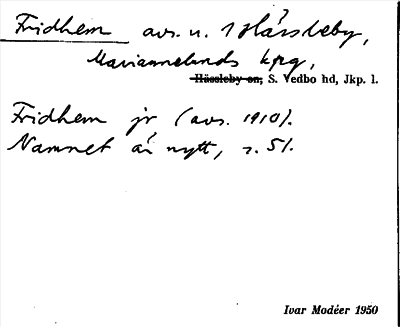 Fridhem avs. u. 1 Hässleby,
Mariannelunds kpg,
Hässleby sn, S. Vedbo hd, Jkp. l.
Fridhem jr (avs. 1910).
Namnet är nytt, s. 51.
Ivar Modéer 1950